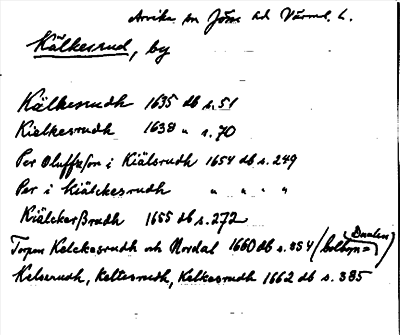 Arvika sn Jösse hd Värml. l.
Kälkesrud, by
Kälkesrudh 1635 db s. 51
Kielkesrudh 1638 " s. 70
Per Oluffzson i Kiälsrudh 1654 db s. 249
Per i Kiälckesrudh " " " "
Kiälckerßrudh 1655 db s. 272
Torpen Kelckesrudh och Nordal 1660 db s. 254
Kelserudh, Keltesrudh, Kelkesrudh 1662 db s. 385